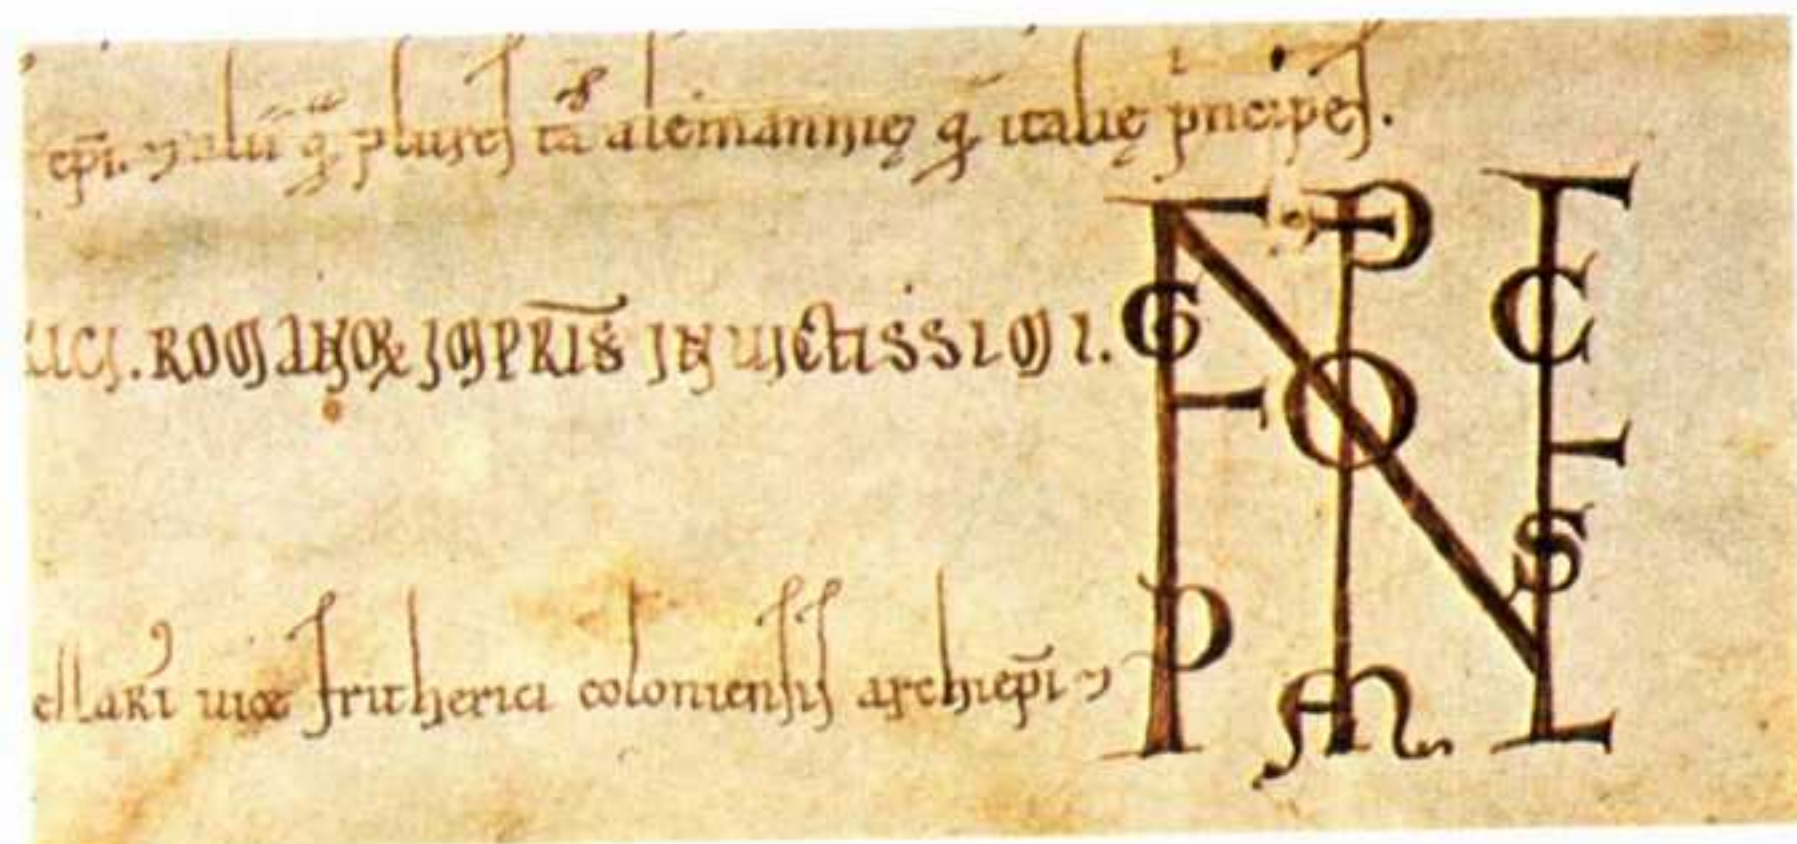 ep̄i. ⁊ alii q̄ plures tā alemannię q̄ italię p̄ncipes.
RICI. ROMANOꝜ IMPR̄IS INUICTISSIMI.
ellarii uice fritherici coloniensis archiep̄i ⁊